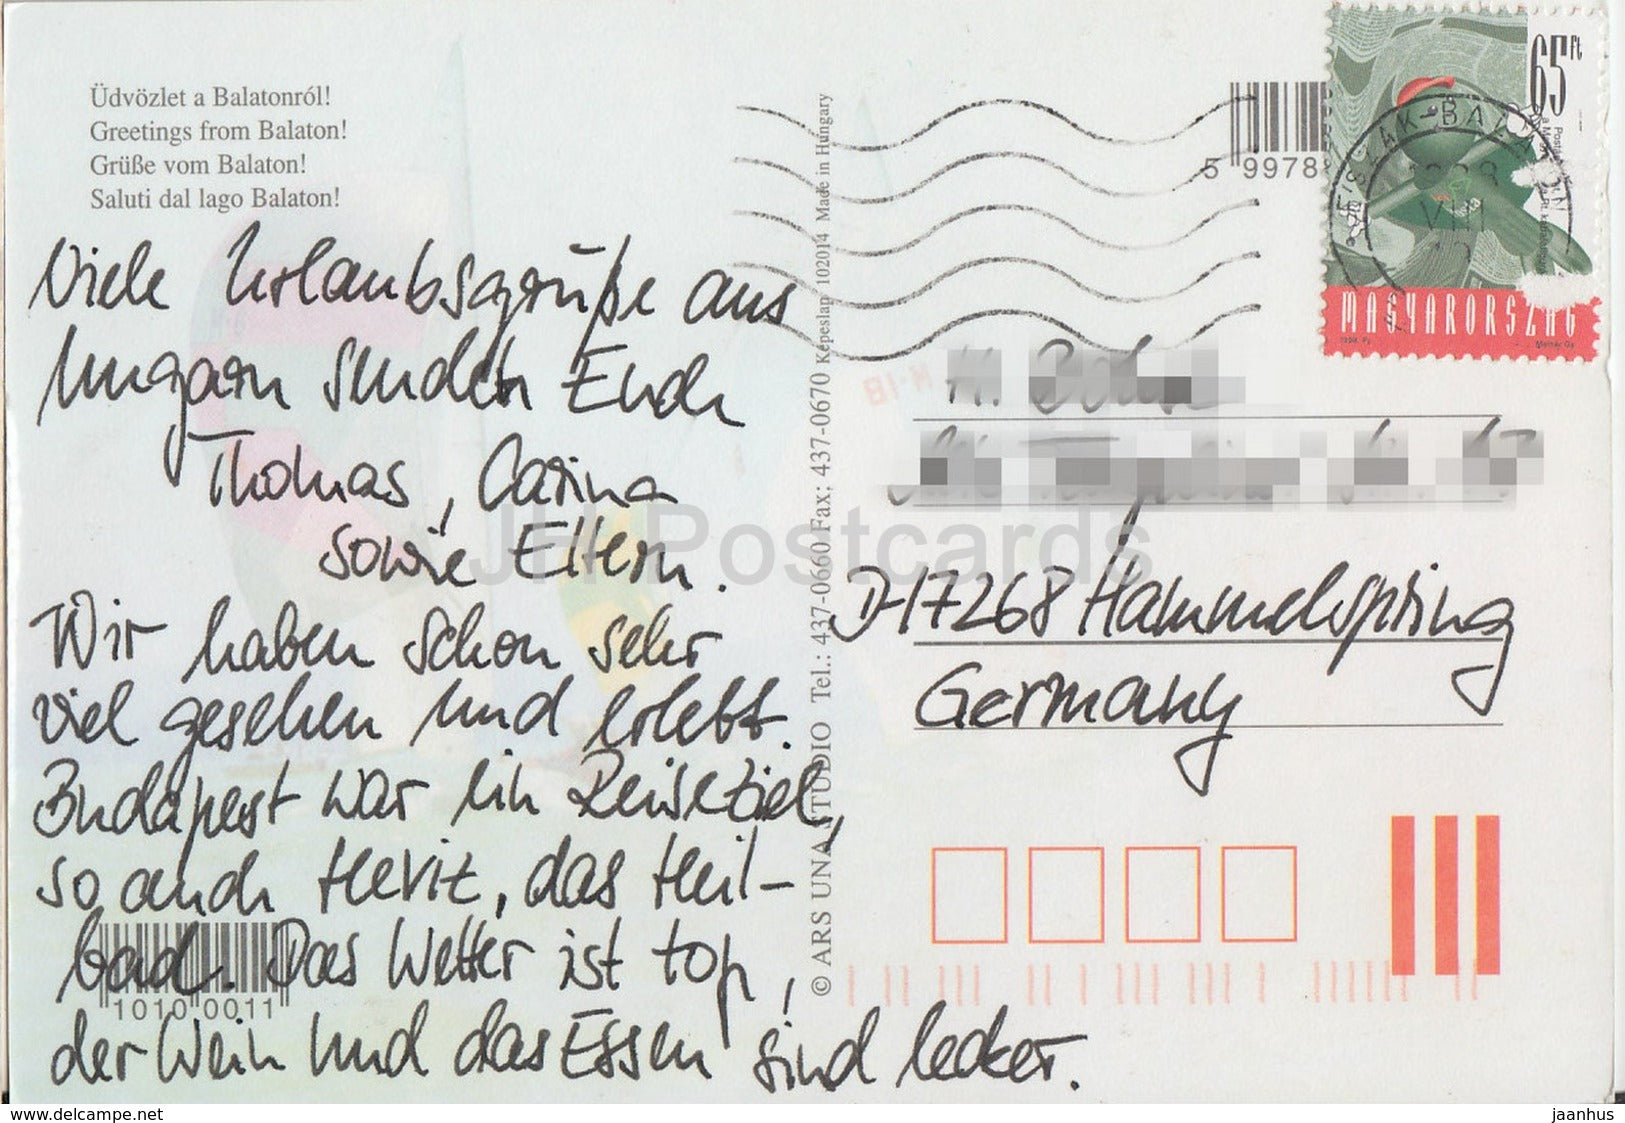 Üdvözlet a Balatonról!
Greetings from Balaton!
Grüße vom Balaton!
Saluti dal lago Balaton!
Viele Urlaubsgrüße aus
Ungarn senden Euch
Thomas, Carina
sowie Eltern.
Wir haben schon sehr
viel gesehen und erlebt.
Budapest war ein Reiseziel,
so auch Heviz, das Heil-
bad. Das Wetter ist top,
der Wein und das Essen sind lecker.
1010 0011
© ARS UNA STUDIO Tel.: 437-0660 Fax: 437-0670 Képeslap 102014 Made in Hungary
5 9978
65 Ft
MAGYARORSZÁG
D-17268 Hammelspring
Germany
JH Postcards
www.delcampe.net
jaanhus